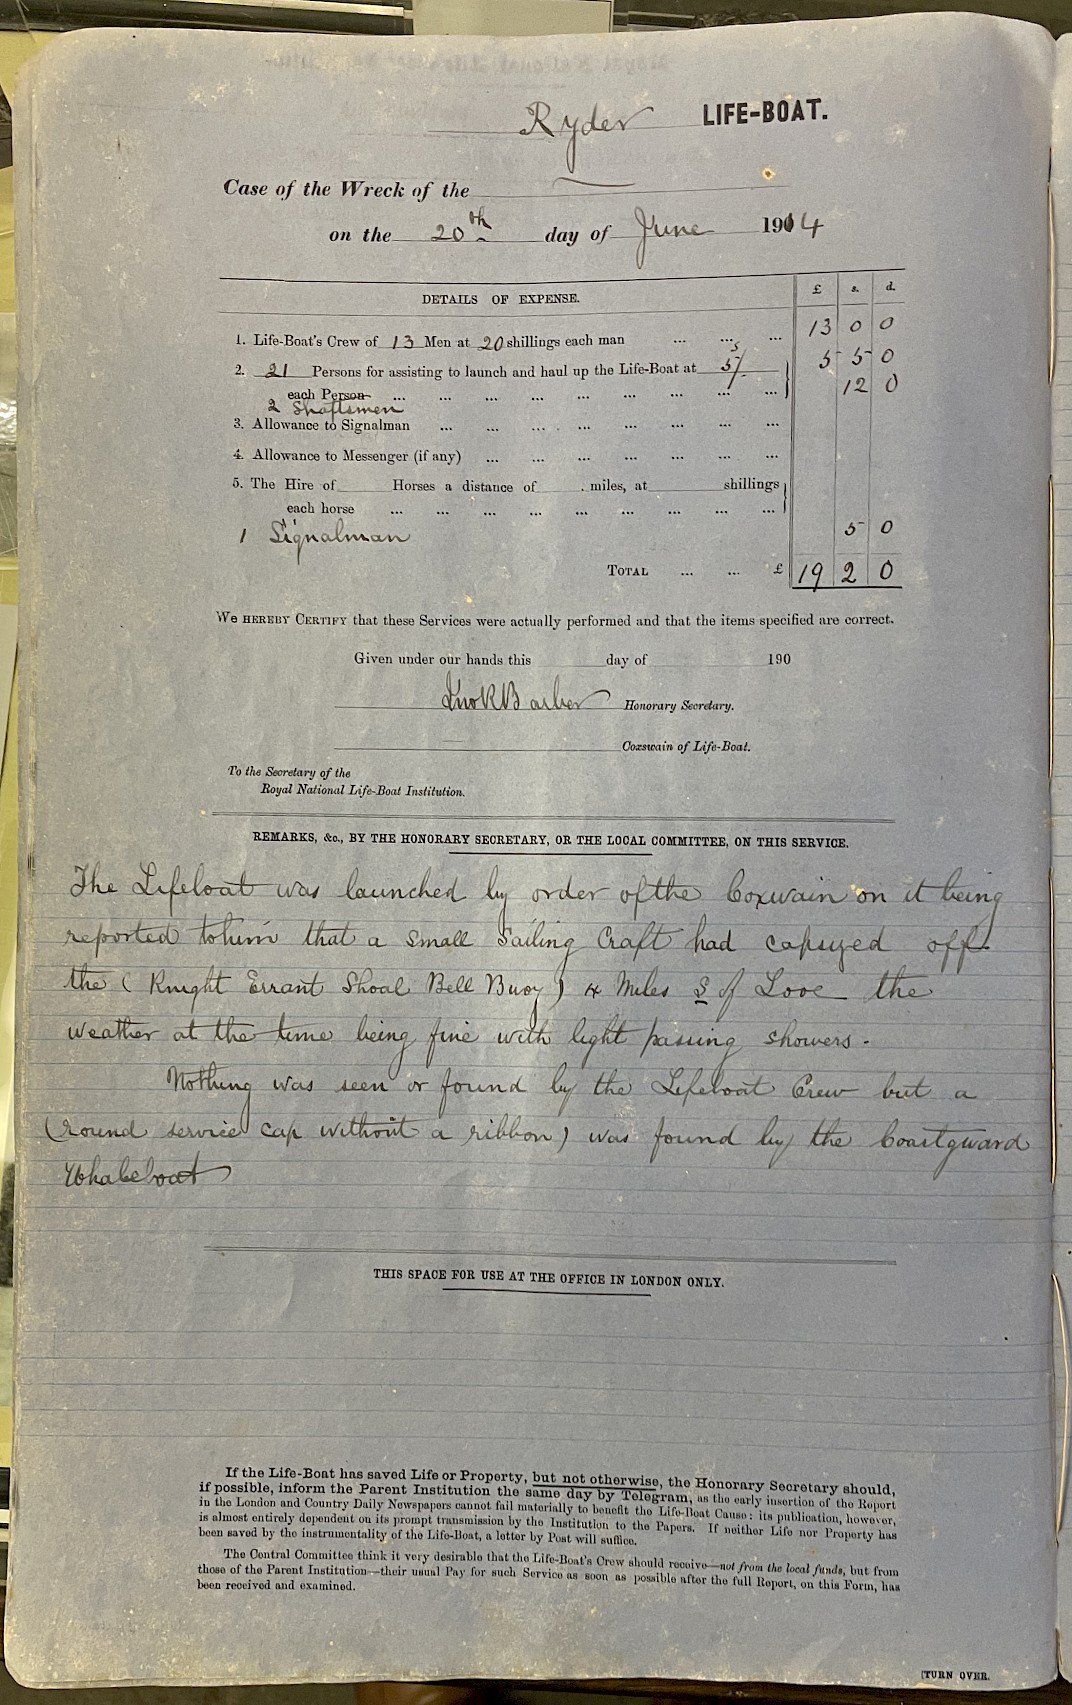 Ryder LIFE-BOAT.
Case of the Wreck of the
on the 20th day of June 1904
DETAILS OF EXPENSE. £ s. d.
1. Life-Boat's Crew of 13 Men at 20 shillings each man ... ... ... 13 0 0
2. 21 Persons for assisting to launch and haul up the Life-Boat at 5/- 5 5 0
each Person ... ... ... ... ... ... ... ... ... 12 0
2 Shaftsmen
3. Allowance to Signalman ... ... ... ... ... ... ... ...
4. Allowance to Messenger (if any) ... ... ... ... ... ... ...
5. The Hire of Horses a distance of miles, at shillings
each horse ... ... ... ... ... ... ... ... ...
1 Signalman 5 0
TOTAL ... ... £ 19 2 0
We HEREBY CERTIFY that these Services were actually performed and that the items specified are correct.
Given under our hands this day of 190
Jno R Barber Honorary Secretary.
Coxswain of Life-Boat.
To the Secretary of the
Royal National Life-Boat Institution.
REMARKS, &c., BY THE HONORARY SECRETARY, OR THE LOCAL COMMITTEE, ON THIS SERVICE.
The Lifeboat was launched by order of the Coxwain on it being
reported to him that a small Sailing Craft had capsyed off
the (Knight Errant Shoal Bell Buoy) 4 Miles S of Looe the
weather at the time being fine with light passing showers.
Nothing was seen or found by the Lifeboat Crew but a
(round service cap without a ribbon) was found by the Coastgward
Whaleboat
THIS SPACE FOR USE AT THE OFFICE IN LONDON ONLY.
If the Life-Boat has saved Life or Property, but not otherwise, the Honorary Secretary should,
if possible, inform the Parent Institution the same day by Telegram, as the early insertion of the Report
in the London and Country Daily Newspapers cannot fail materially to benefit the Life-Boat Cause: its publication, however,
is almost entirely dependent on its prompt transmission by the Institution to the Papers. If neither Life nor Property has
been saved by the instrumentality of the Life-Boat, a letter by Post will suffice.
The Central Committee think it very desirable that the Life-Boat's Crew should receive—not from the local funds, but from
those of the Parent Institution—their usual Pay for such Service as soon as possible after the full Report, on this Form, has
been received and examined.
[TURN OVER.